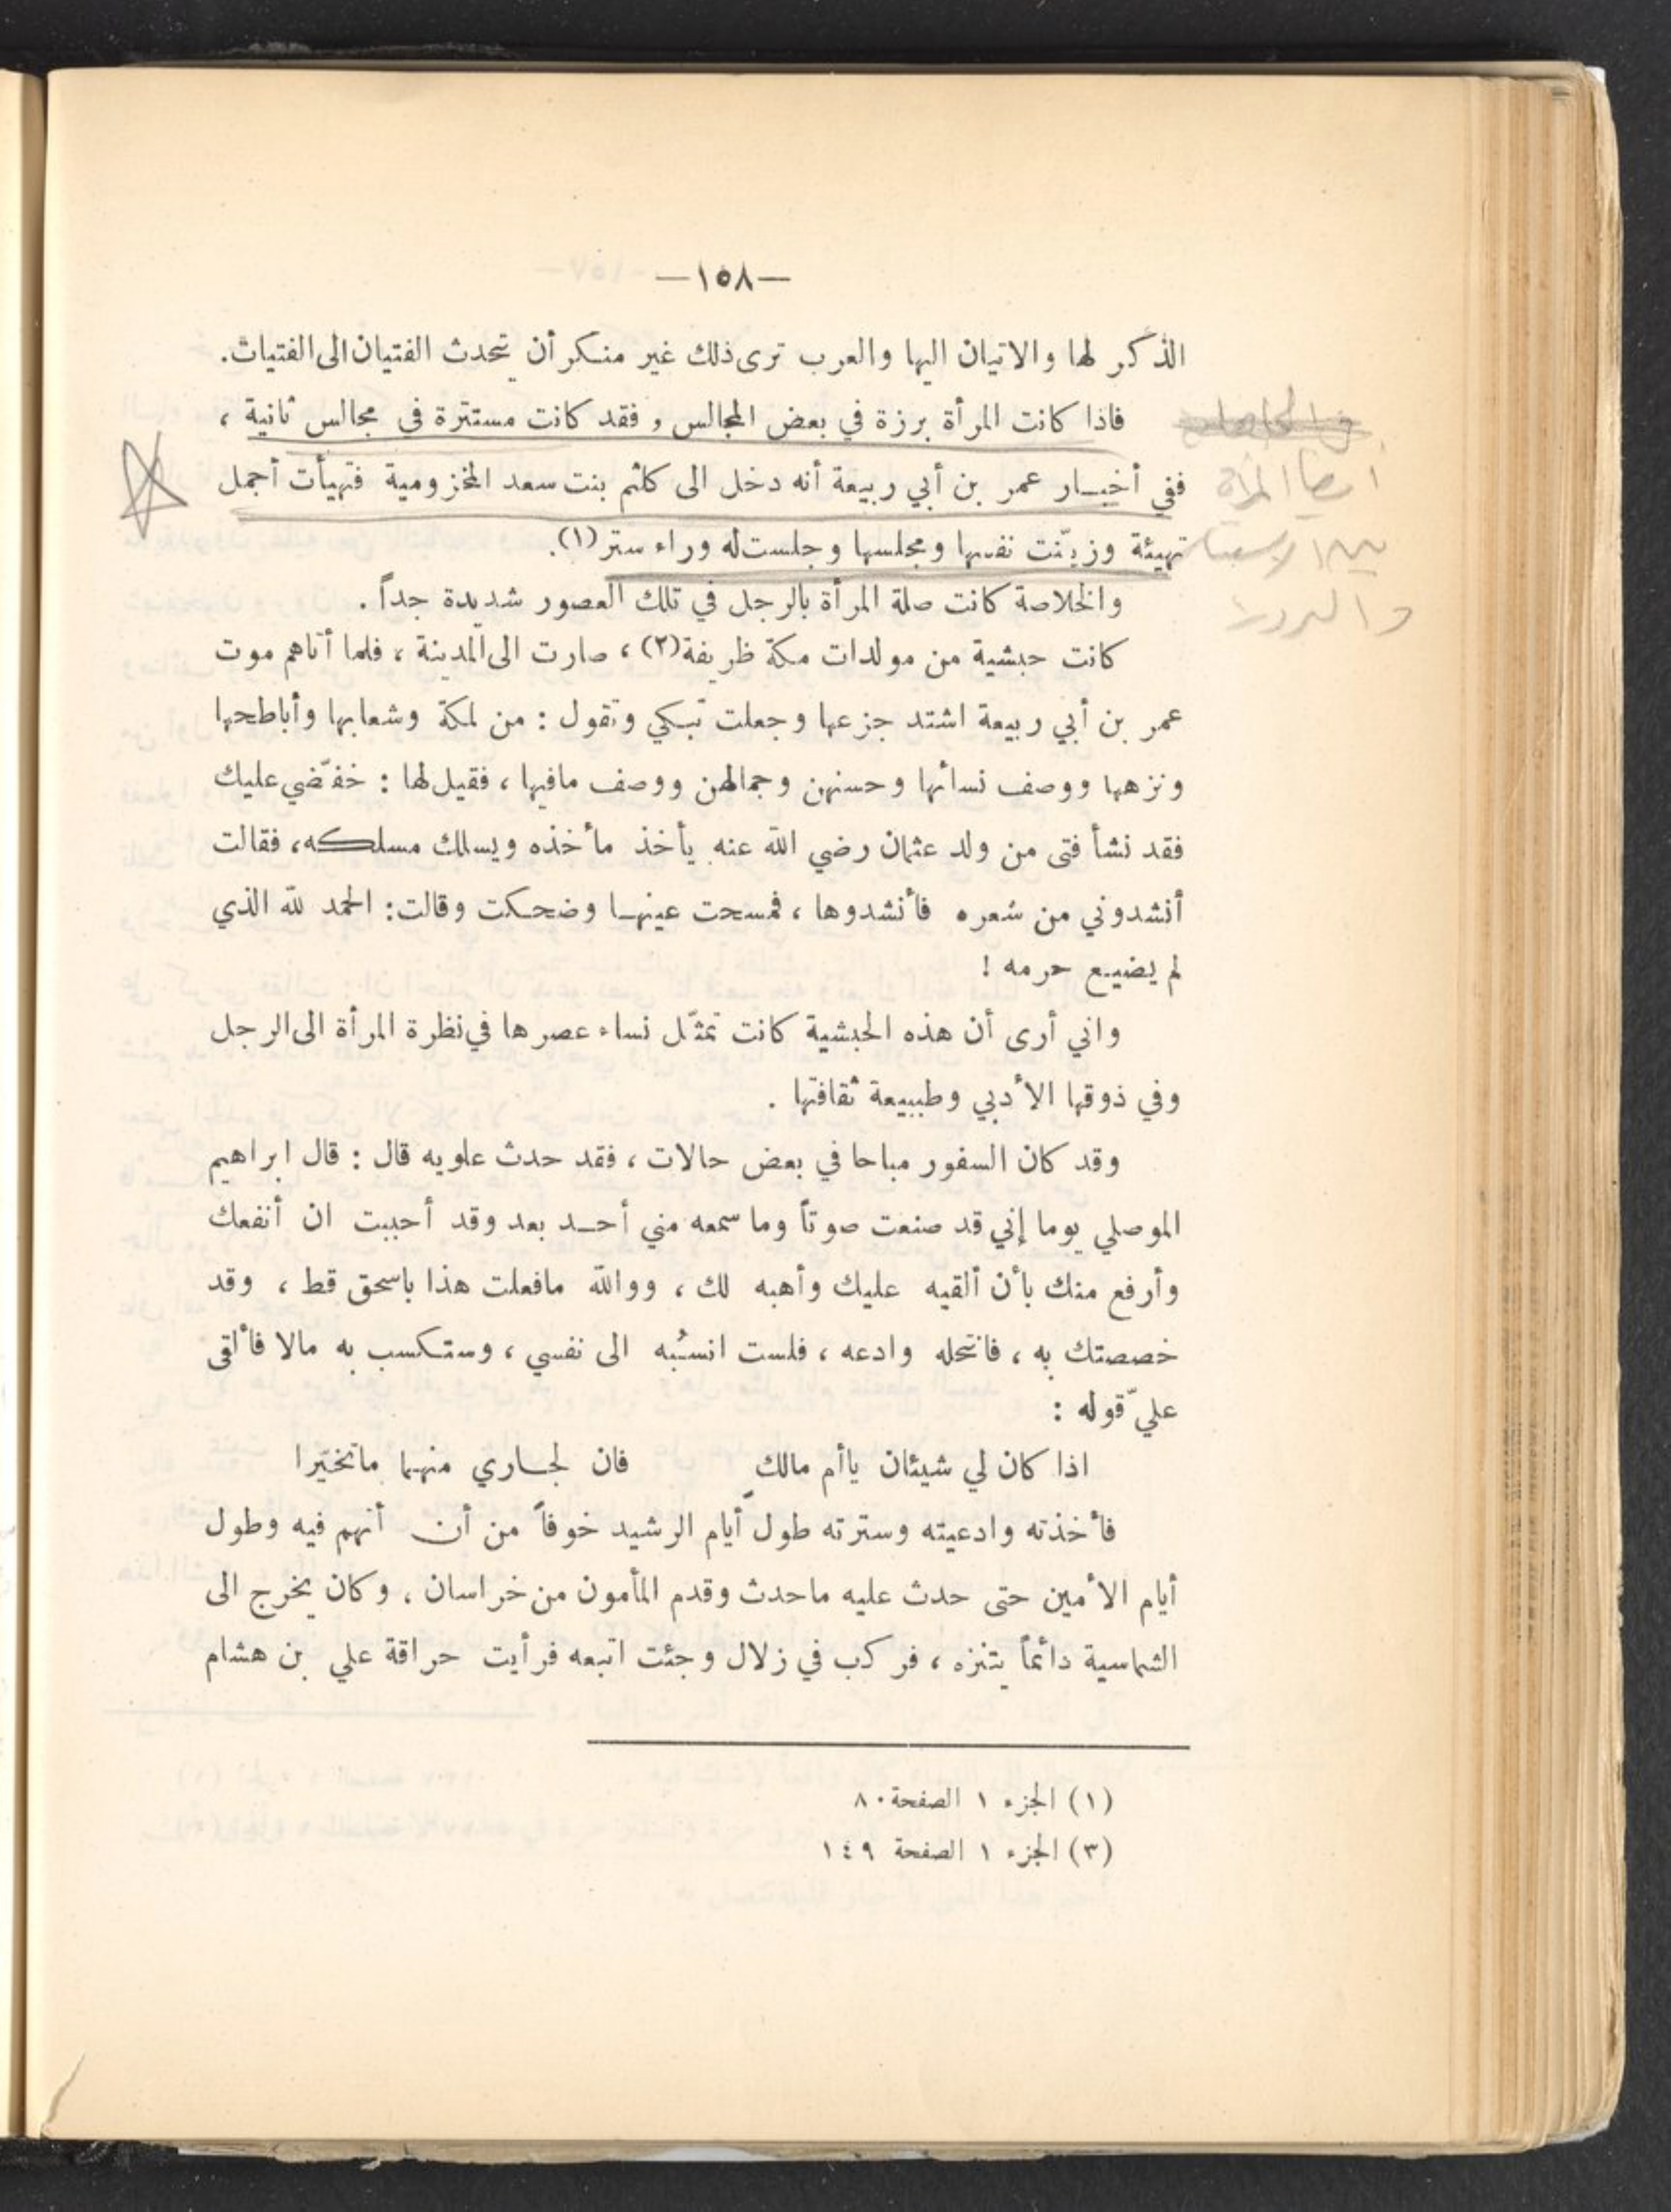 —١٥٨—
الذكر لها والاتيان اليها والعرب ترى ذلك غير منكر أن تحدث الفتيان الى الفتيات.
فاذا كانت المرأة برزة في بعض المجالس، فقد كانت مستترة في مجالس ثانية،
ففي أخبار عمر بن أبي ربيعة أنه دخل الى كلثم بنت سعد المخزومية فتهيأت أجمل
تهيئة وزيّنت نفسها ومجلسها وجلست له وراء ستر (١).
أيضا المرأة
بين الاستتار
والبروز
والخلاصة كانت صلة المرأة بالرجل في تلك العصور شديدة جداً.
كانت حبشية من مولدات مكة ظريفة (٢)، صارت الى المدينة، فلما أتاهم موت
عمر بن أبي ربيعة اشتد جزعها وجعلت تبكي وتقول: من لمكة وشعابها وأباطحها
ونزهها ووصف نسائها وحسنهن وجمالهن ووصف مافيها، فقيل لها: خفّضي عليك
فقد نشأ فتى من ولد عثمان رضي الله عنه يأخذ مأخذه ويسلك مسلكه، فقالت
أنشدوني من شعره فأنشدوها، فمسحت عينها وضحكت وقالت: الحمد لله الذي
لم يضيع حرمه!
واني أرى أن هذه الحبشية كانت تمثّل نساء عصرها في نظرة المرأة الى الرجل
وفي ذوقها الأدبي وطبيعة ثقافتها.
وقد كان السفور مباحا في بعض حالات، فقد حدث علويه قال: قال ابراهيم
الموصلي يوما إني قد صنعت صوتاً وما سمعه مني أحد بعد وقد أحببت ان أنفعك
وأرفع منك بأن ألقيه عليك وأهبه لك، ووالله مافعلت هذا باسحق قط، وقد
خصصتك به، فانتحله وادعه، فلست انسُبه الى نفسي، وستكسب به مالا فألقى
عليّ قوله:
اذا كان لي شيئان ياأم مالكٍ فان لجاري منهما ماتخيّرا
فأخذته وادعيته وسترته طول أيام الرشيد خوفاً من أن أتهم فيه وطول
أيام الأمين حتى حدث عليه ماحدث وقدم المأمون من خراسان، وكان يخرج الى
الشماسية دائماً يتنزه، فركب في زلال وجئت اتبعه فرأيت حراقة علي بن هشام
(١) الجزء ١ الصفحة ٨٠
(٣) الجزء ١ الصفحة ١٤٩